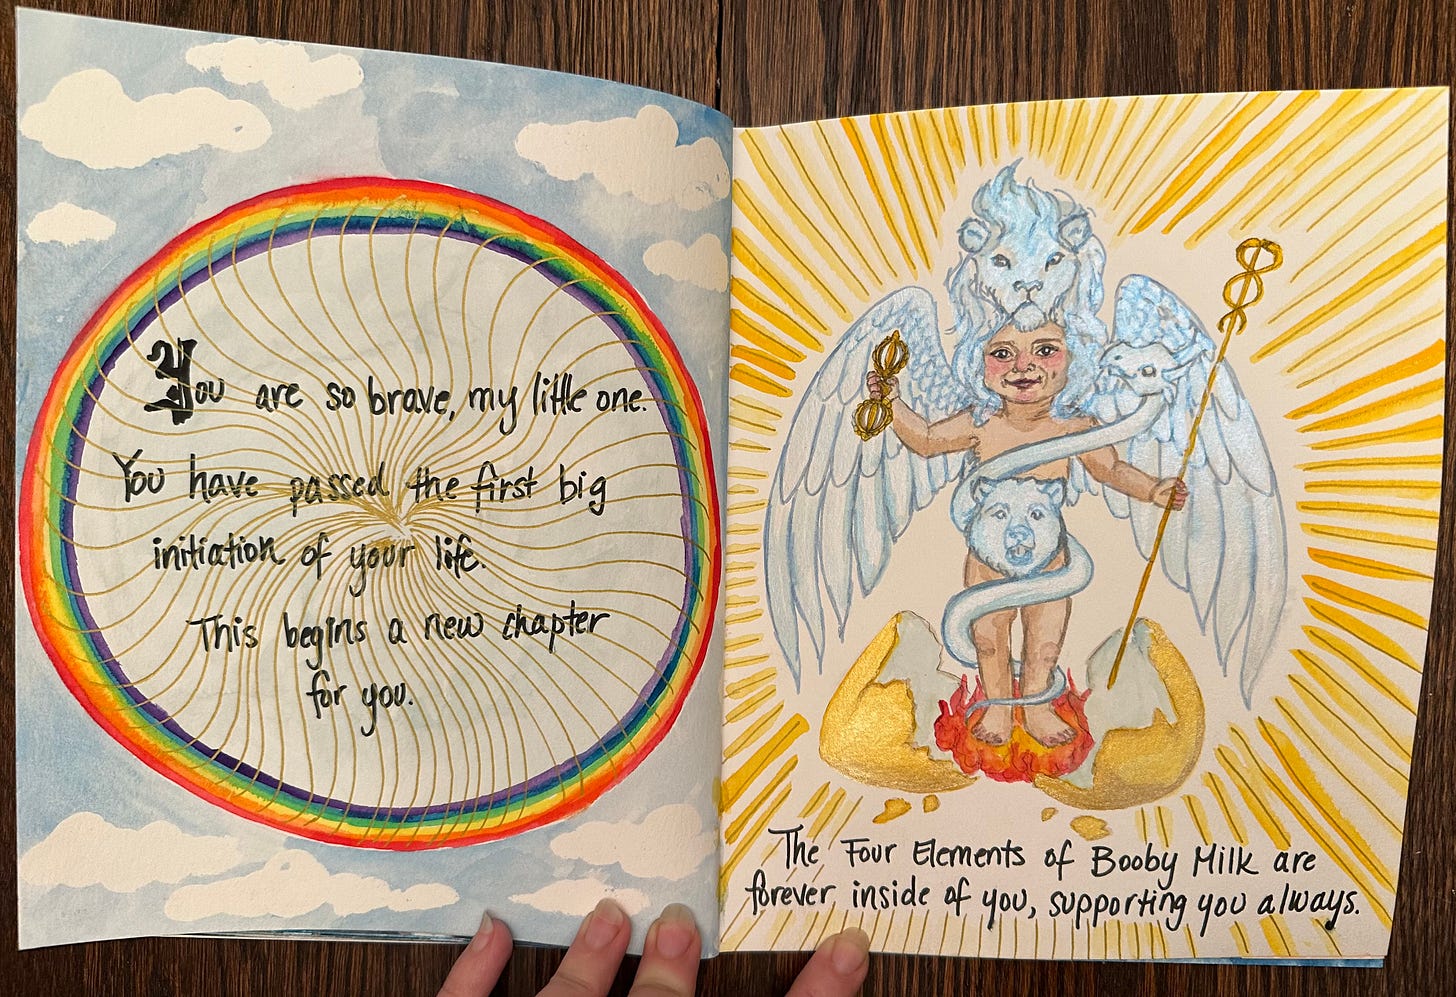 You are so brave, my little one.
You have passed the first big
initiation of your life.
This begins a new chapter
for you.
The Four Elements of Booby Milk are
forever inside of you, supporting you always.